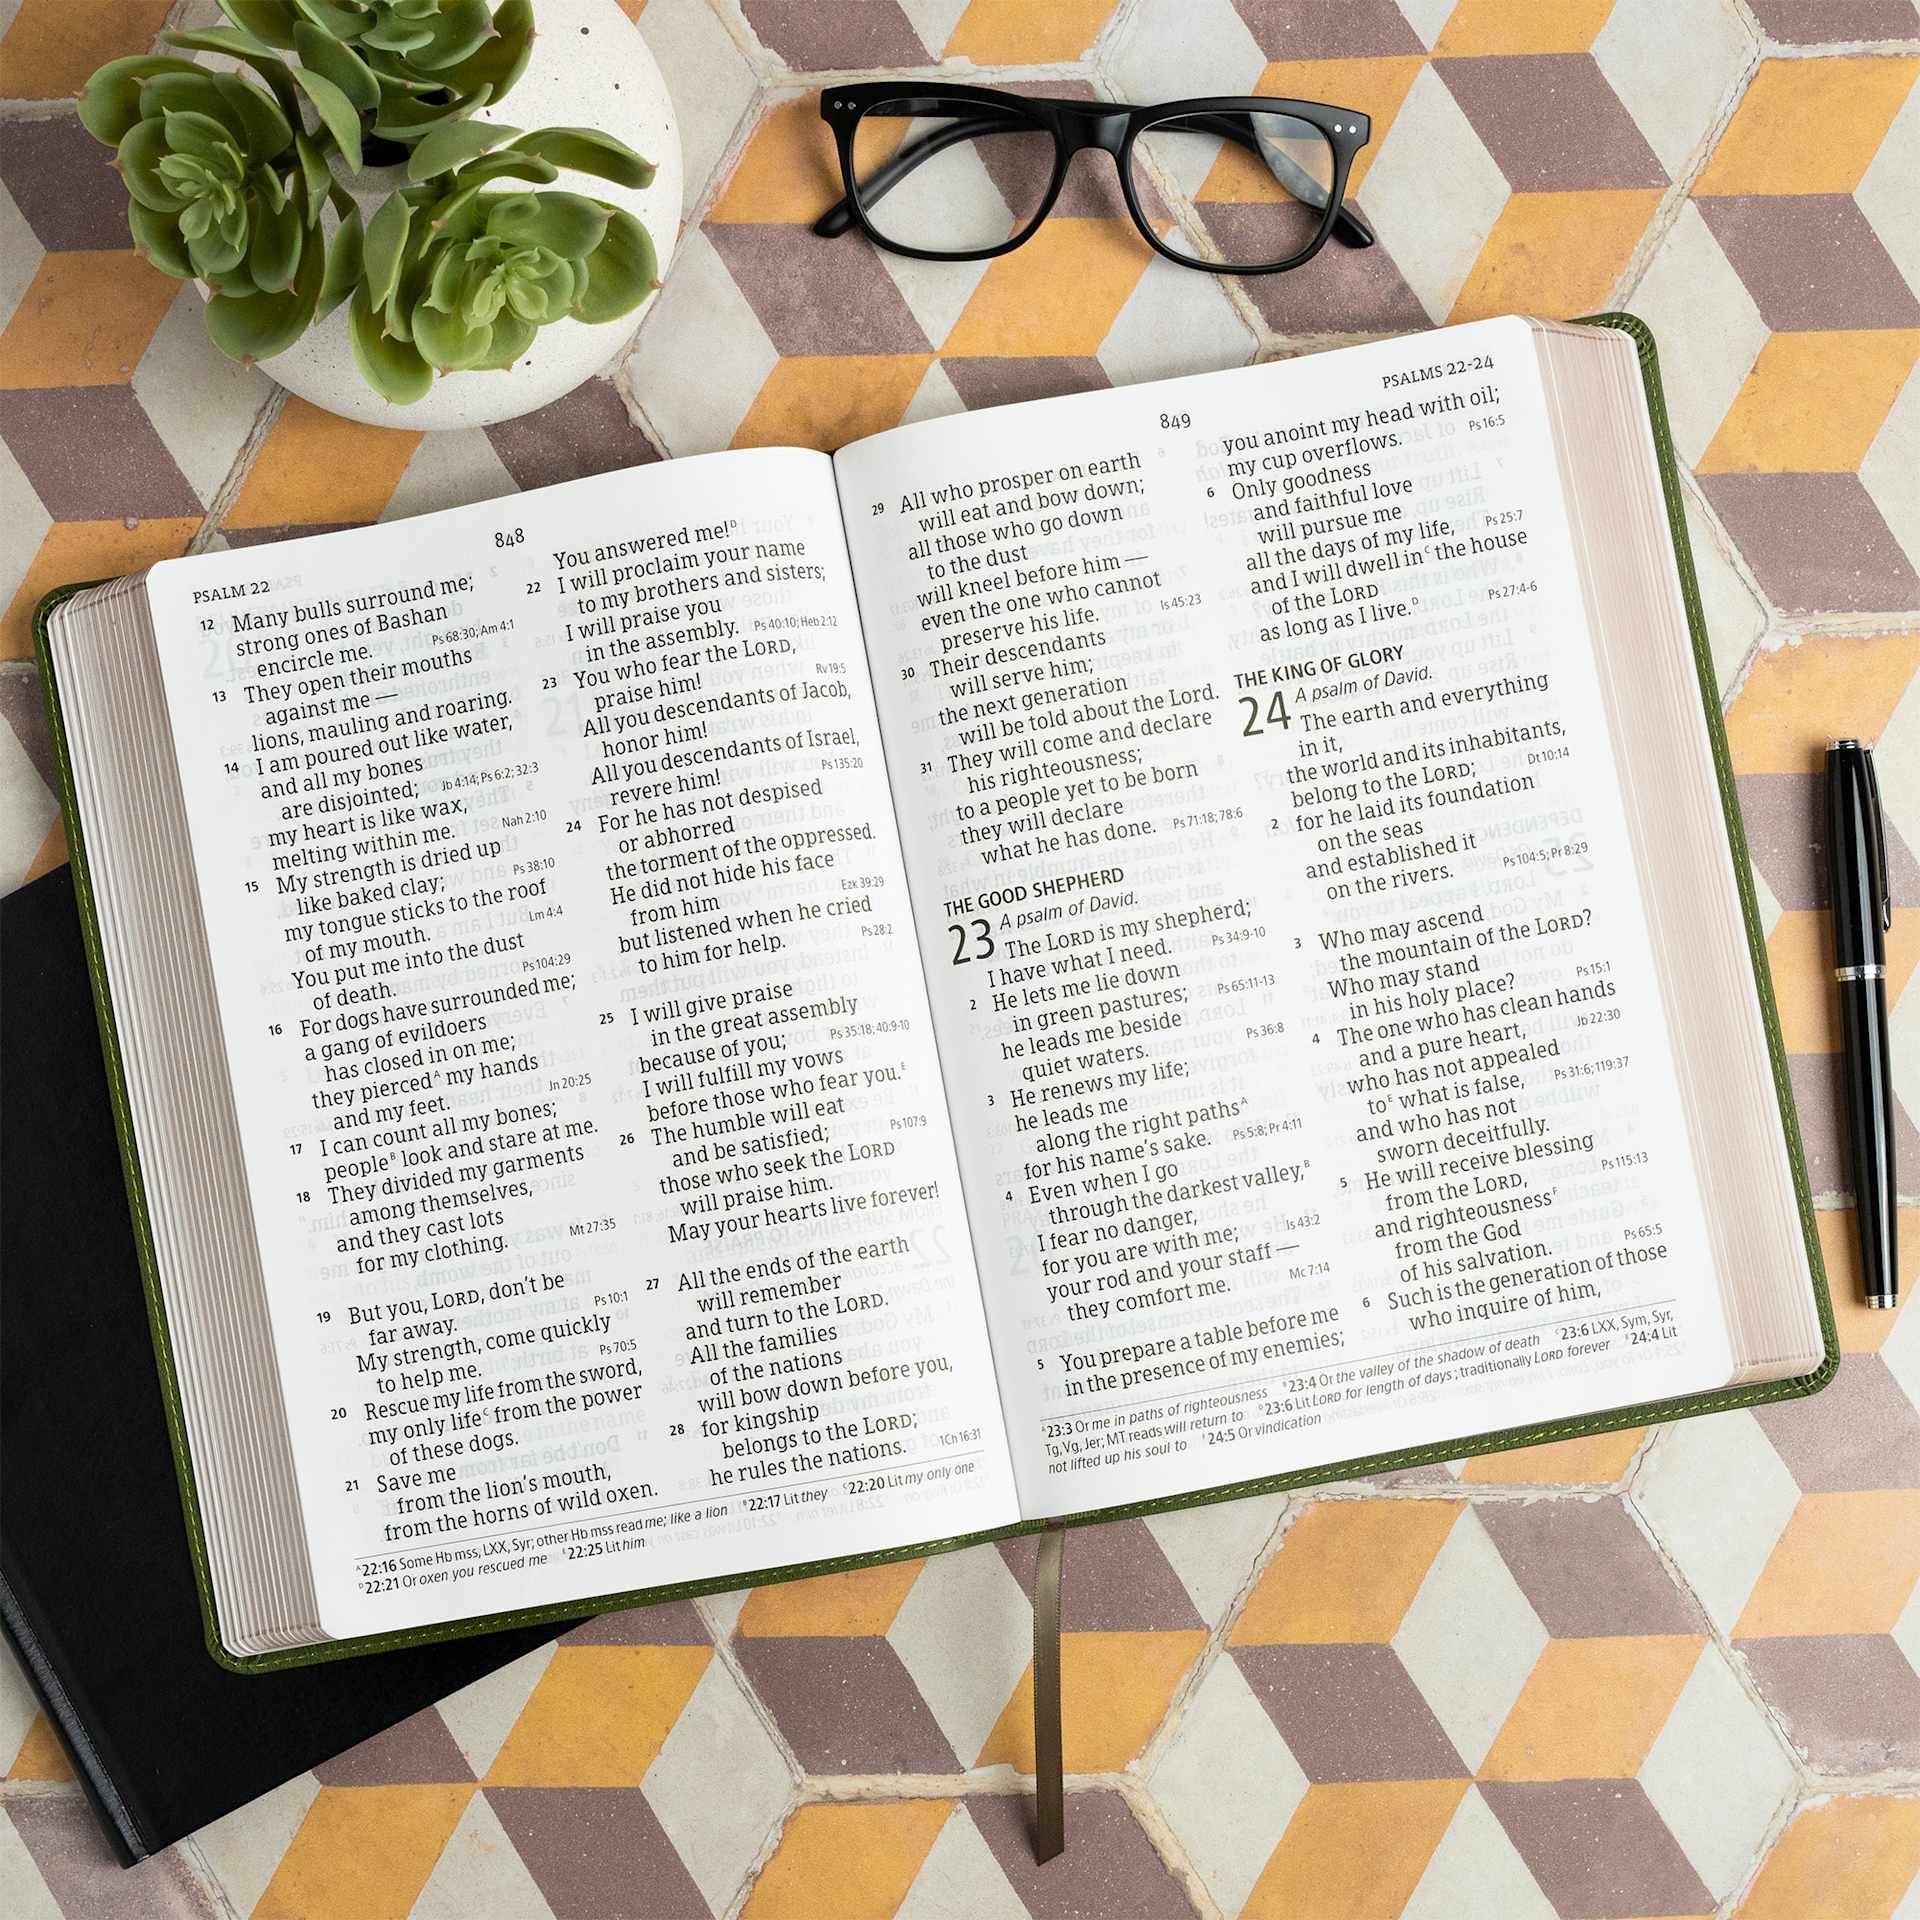 PSALM 22
848
12 Many bulls surround me;
strong ones of Bashan
encircle me. Ps 68:30; Am 4:1
13 They open their mouths
against me —
lions, mauling and roaring.
14 I am poured out like water,
and all my bones
are disjointed; Jb 4:14; Ps 6:2; 32:3
my heart is like wax,
melting within me. Nah 2:10
15 My strength is dried up
like baked clay; Ps 38:10
my tongue sticks to the roof
of my mouth. Lm 4:4
You put me into the dust
of death. Ps 104:29
16 For dogs have surrounded me;
a gang of evildoers
has closed in on me;
they piercedᴬ my hands
and my feet. Jn 20:25
17 I can count all my bones;
peopleᴮ look and stare at me.
18 They divided my garments
among themselves,
and they cast lots
for my clothing. Mt 27:35
19 But you, LORD, don't be
far away. Ps 10:1
My strength, come quickly
to help me. Ps 70:5
20 Rescue my life from the sword,
my only lifeᶜ from the power
of these dogs.
21 Save me
from the lion's mouth,
from the horns of wild oxen.
You answered me!ᴰ
22 I will proclaim your name
to my brothers and sisters;
I will praise you
in the assembly. Ps 40:10; Heb 2:12
23 You who fear the LORD,
praise him! Rv 19:5
All you descendants of Jacob,
honor him!
All you descendants of Israel,
revere him! Ps 135:20
24 For he has not despised
or abhorred
the torment of the oppressed.
He did not hide his face
from him Ezk 39:29
but listened when he cried
to him for help. Ps 28:2
25 I will give praise
in the great assembly
because of you; Ps 35:18; 40:9-10
I will fulfill my vows
before those who fear you.ᴱ
26 The humble will eat
and be satisfied; Ps 107:9
those who seek the LORD
will praise him.
May your hearts live forever!
27 All the ends of the earth
will remember
and turn to the LORD.
All the families
of the nations
will bow down before you,
28 for kingship
belongs to the LORD;
he rules the nations. 1Ch 16:31
ᴬ22:16 Some Hb mss, LXX, Syr; other Hb mss read me; like a lion ᴮ22:17 Lit they ᶜ22:20 Lit my only one
ᴰ22:21 Or oxen you rescued me ᴱ22:25 Lit him
849
PSALMS 22-24
29 All who prosper on earth
will eat and bow down;
all those who go down
to the dust
will kneel before him —
even the one who cannot
preserve his life. Is 45:23
30 Their descendants
will serve him;
the next generation
will be told about the Lord.
31 They will come and declare
his righteousness;
to a people yet to be born
they will declare
what he has done. Ps 71:18; 78:6
THE GOOD SHEPHERD
A psalm of David.
23 The LORD is my shepherd;
I have what I need. Ps 34:9-10
2 He lets me lie down
in green pastures; Ps 65:11-13
he leads me beside
quiet waters. Ps 36:8
3 He renews my life;
he leads me
along the right pathsᴬ
for his name's sake. Ps 5:8; Pr 4:11
4 Even when I go
through the darkest valley,ᴮ
I fear no danger,
for you are with me; Is 43:2
your rod and your staff —
they comfort me. Mc 7:14
5 You prepare a table before me
in the presence of my enemies;
you anoint my head with oil;
my cup overflows. Ps 16:5
6 Only goodness
and faithful love
will pursue me
all the days of my life, Ps 25:7
and I will dwell inᶜ the house
of the LORD
as long as I live.ᴰ Ps 27:4-6
THE KING OF GLORY
A psalm of David.
24 The earth and everything
in it,
the world and its inhabitants,
belong to the LORD; Dt 10:14
2 for he laid its foundation
on the seas
and established it
on the rivers. Ps 104:5; Pr 8:29
3 Who may ascend
the mountain of the LORD?
Who may stand
in his holy place? Ps 15:1
4 The one who has clean hands
and a pure heart, Jb 22:30
who has not appealed
toᴱ what is false, Ps 31:6; 119:37
and who has not
sworn deceitfully.
5 He will receive blessing
from the LORD, Ps 115:13
and righteousnessᶠ
from the God
of his salvation. Ps 65:5
6 Such is the generation of those
who inquire of him,
ᴬ23:3 Or me in paths of righteousness ᴮ23:4 Or the valley of the shadow of death ᶜ23:6 LXX, Sym, Syr,
Tg, Vg, Jer; MT reads will return to ᴰ23:6 Lit LORD for length of days; traditionally LORD forever ᴱ24:4 Lit
not lifted up his soul to ᶠ24:5 Or vindication